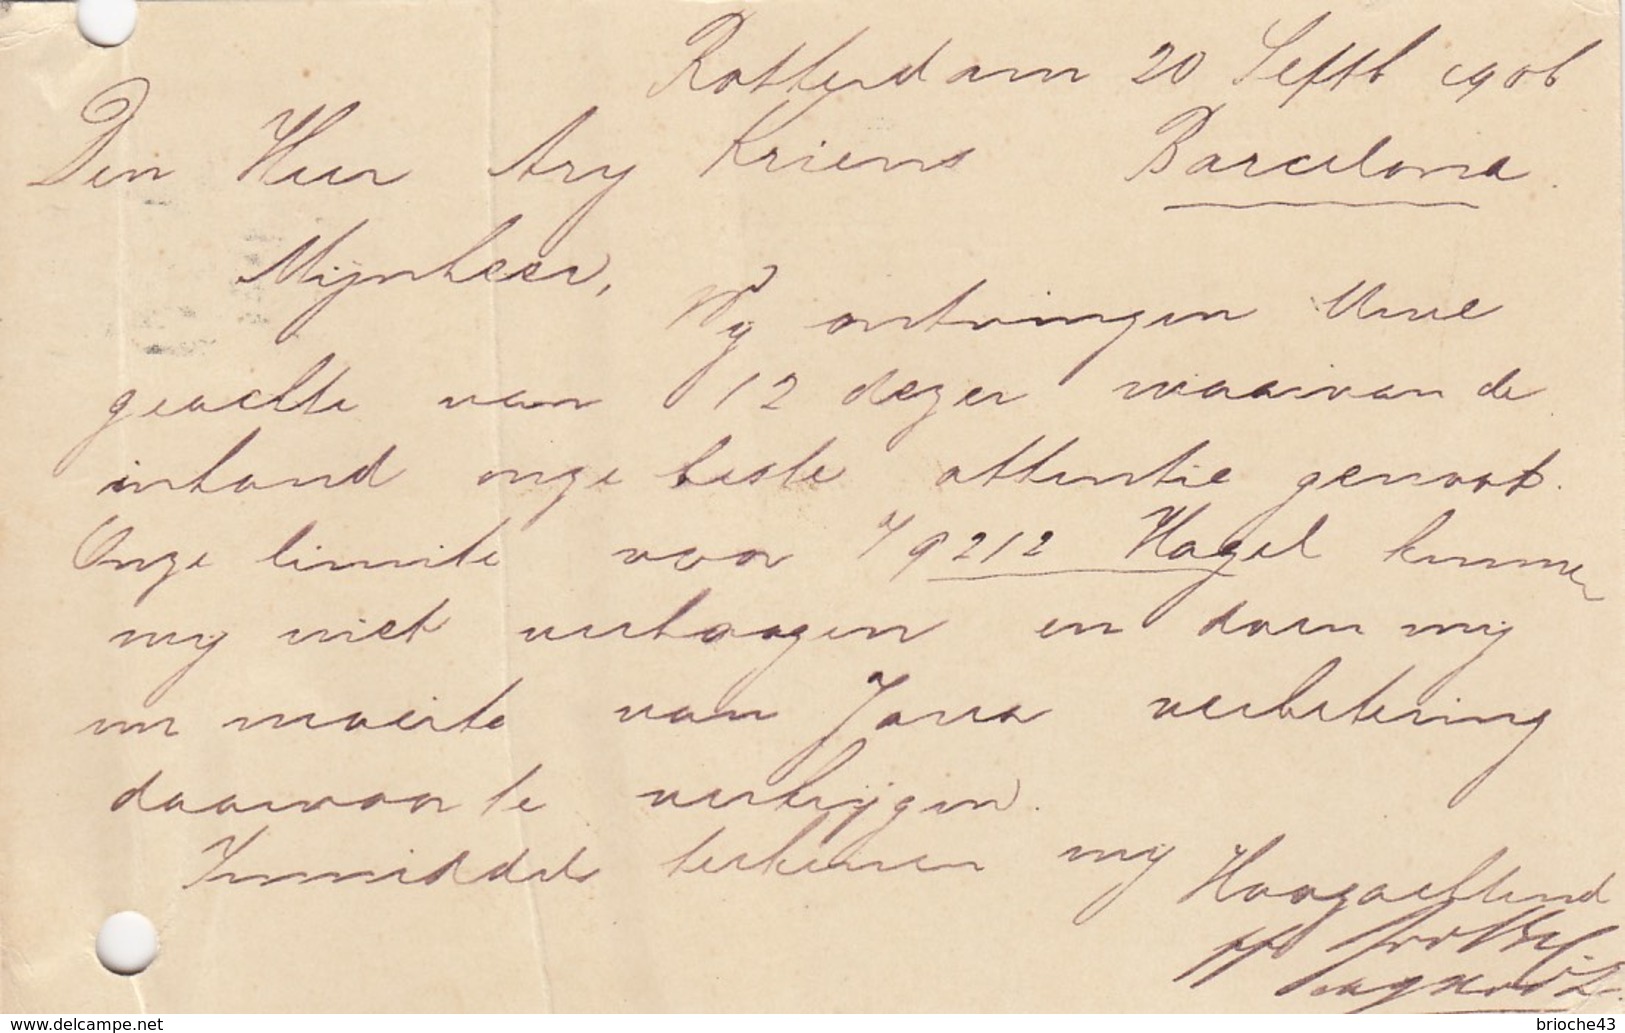 Rotterdam 20 Septb 1906
Den Heer Ary Kriens Barcelona.
Mijnheer,
Wij ontvingen Uwe
geachte van 12 dezer waarvan de
inhoud onze beste attentie genoot.
Onze limite voor 9212 Hagel kunnen
wij niet verhoogen en doen wij
moeite van Java verbetering
daarvoor te verkrijgen.
Inmiddels teekenen wij
Hoogachtend
ppo
brioche43